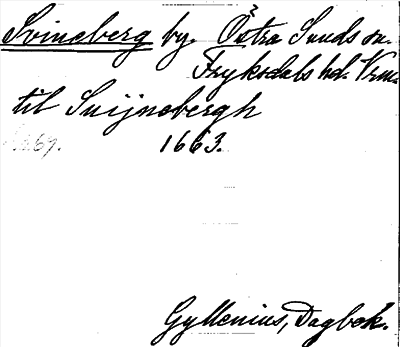 Svineberg by Östra Sunds sn.
Fryksdals hd. Vrm.
til Suijnebergh
1663.
Gyllenius, Dagbok.